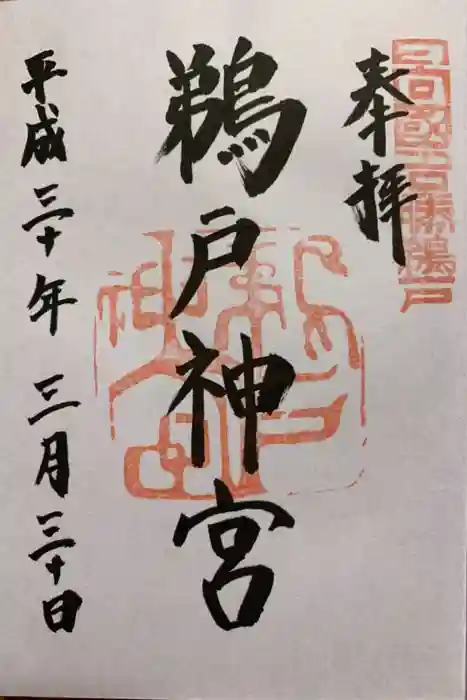 奉拝
日向國吉祥鵜戸
鵜戸神宮
鵜戸神宮
平成三十年三月三十日